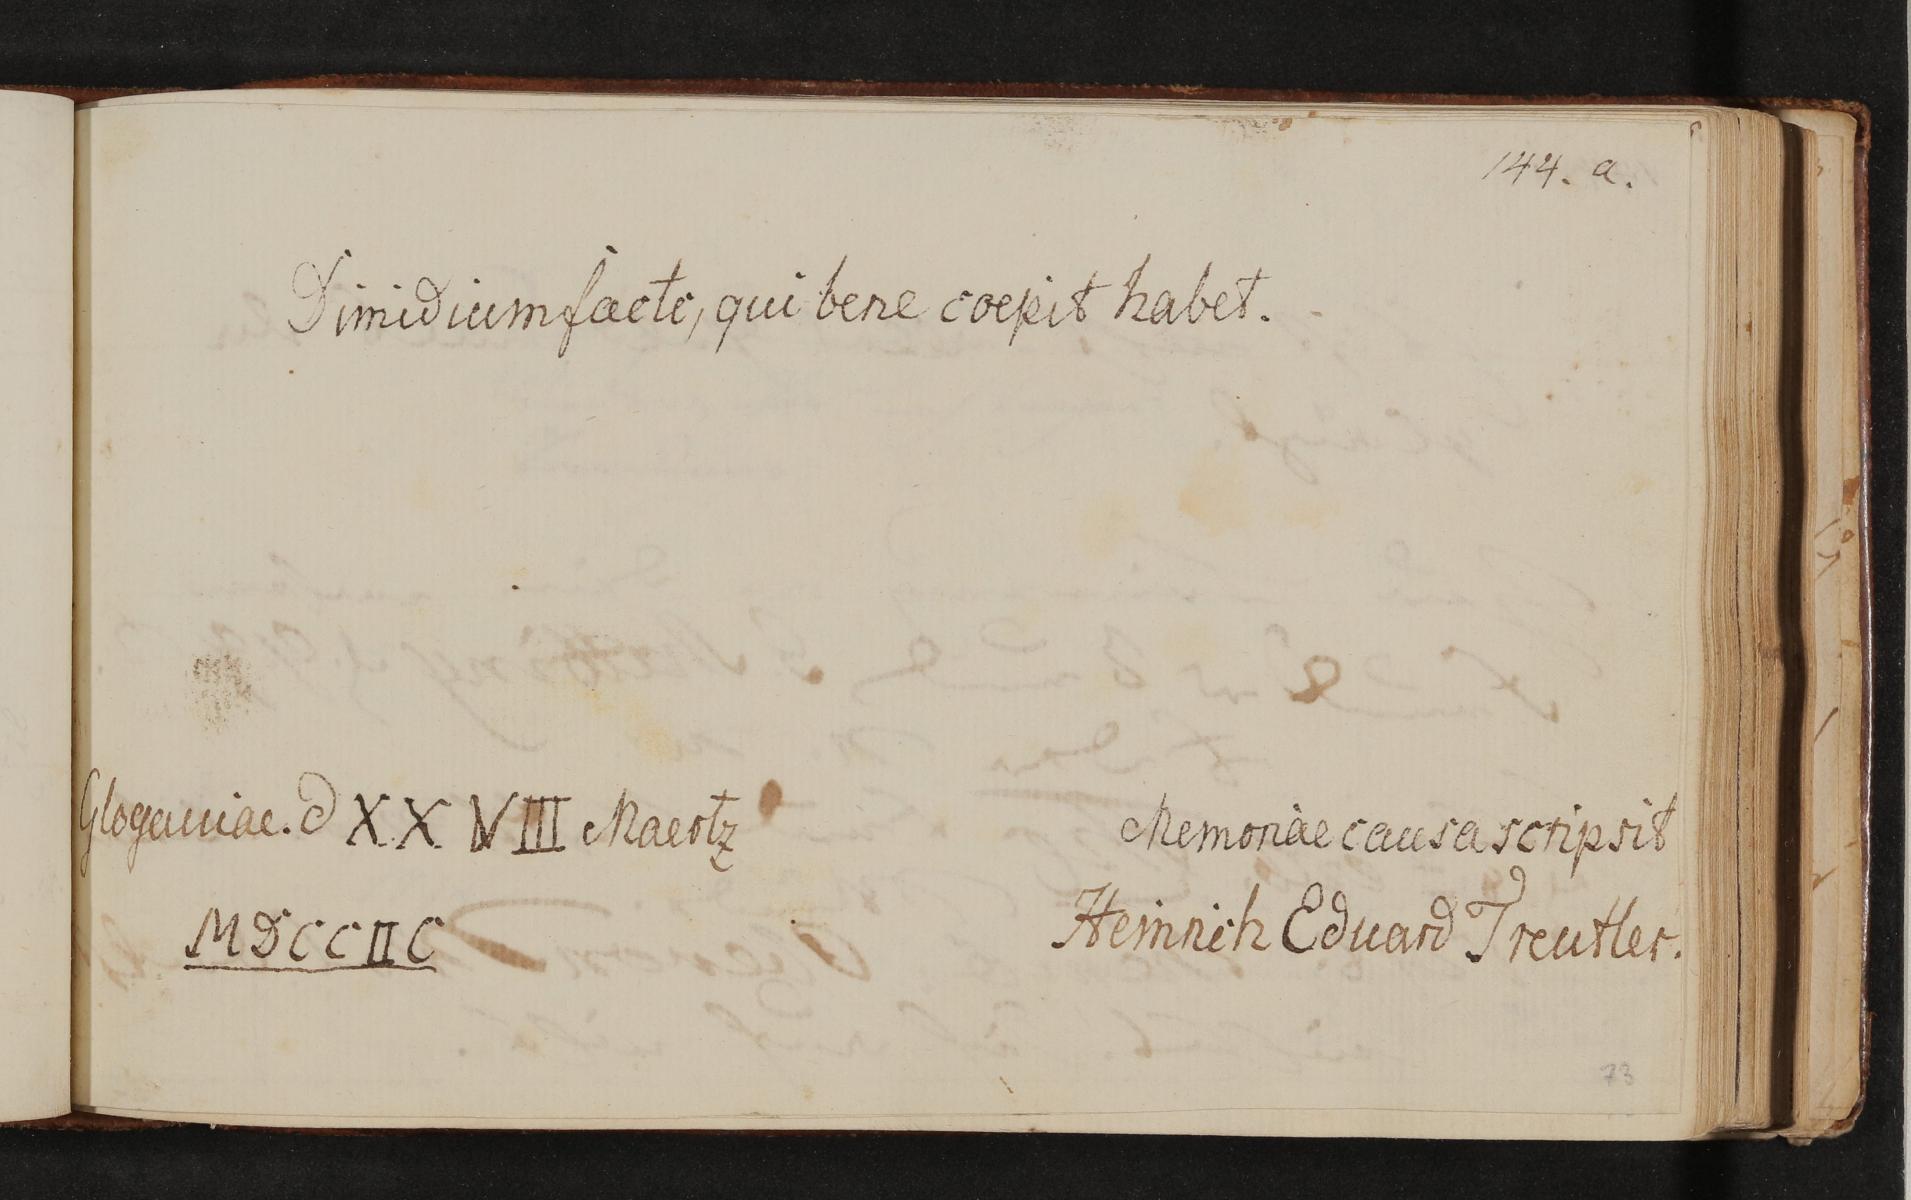 144. a.
Dimidium facti, qui bene coepit habet.
Glogauiae. d XXVIII Maertz
MDCCIIC
Memoriae causa scripsit
Heinrich Eduard Treutler.
73